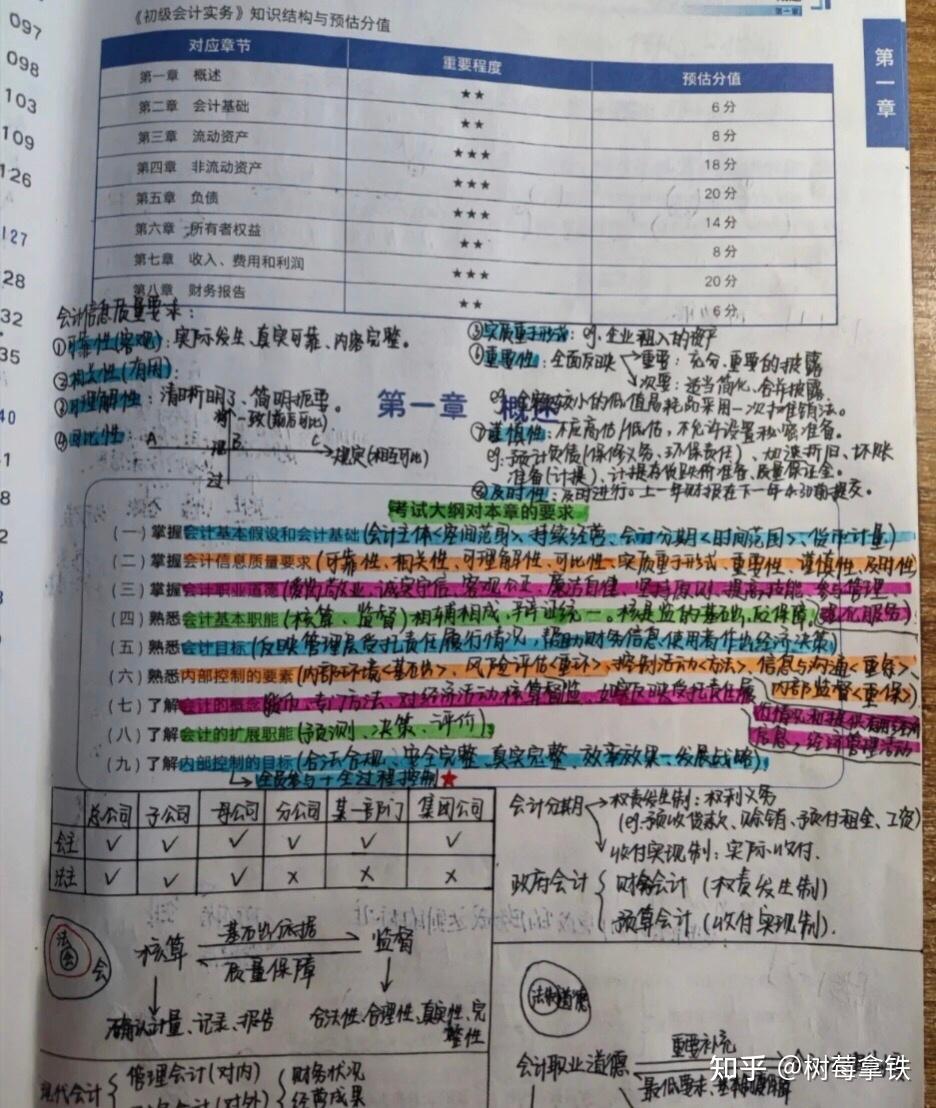 097
098
103
109
126
127
28
32
35
40
第一章
《初级会计实务》知识结构与预估分值
对应章节 重要程度 预估分值
第一章 概述 ★★ 6分
第二章 会计基础 ★★ 8分
第三章 流动资产 ★★★ 18分
第四章 非流动资产 ★★★ 20分
第五章 负债 ★★★ 14分
第六章 所有者权益 ★★ 8分
第七章 收入、费用和利润 ★★★ 20分
第八章 财务报告 ★★ 6分
会计信息质量要求：
①可靠性(客观)：实际发生、真实可靠、内容完整。
②相关性(有用)：
③可理解性：清晰明了、简明扼要。
④可比性：
一致(前后可比)
A B C
规定(相互可比)
⑤实质重于形式：eg.企业租入的资产
⑥重要性：全面反映 重要：充分、重要的披露
次要：适当简化、合并披露
eg.金额较小的低值易耗品采用一次摊销法。
⑦谨慎性：不应高估/低估，不允许设置秘密准备。
eg.预计负债(保修义务、环保责任)、加速折旧、坏账
准备(计提)、计提存货跌价准备、质量保证金。
⑧及时性：及时进行。上一年财报在下一年4.30前提交。
第一章 概述
考试大纲对本章的要求
(一)掌握会计基本假设和会计基础(会计主体<空间范围>、持续经营、会计分期<时间范围>、货币计量)
(二)掌握会计信息质量要求(可靠性、相关性、可理解性、可比性、实质重于形式、重要性、谨慎性、及时性
(三)掌握会计职业道德(爱岗敬业、诚实守信、客观公正、廉洁自律、坚持原则、提高技能、参与管理
强化服务)
(四)熟悉会计基本职能(核算、监督)相辅相成、辩证统一。核是监的基础,
(五)熟悉会计目标(反映管理层受托责任履行情况，帮助财务信息使用者作出经济决策)
(六)熟悉内部控制的要素(内部环境<基础>、风险评估<重环>、控制活动<方法>、信息与沟通<重条>、
内部监督<重保>)
(七)了解会计的概念 货币、专门方法、对经济活动核算督监、如实反映受托责任履
(八)了解会计的扩展职能(预测、决策、评价)
(九)了解内部控制的目标(合法合规、安全完整、真实完整、效率效果、发展战略)
全员参与+全过程控制★
总公司 子公司 母公司 分公司 某一部门 集团公司
会主 ✓ ✓ ✓ ✓ ✓ ✓
法主 ✓ ✓ ✓ × × ×
会计分期 权责发生制：权利义务
(eg.预收货款、赊销、预付租金、工资)
收付实现制：实际收付.
政府会计 财务会计 (权责发生制)
预算会计 (收付实现制).
法 会
核算 基础、依据 监督
质量保障
确认计量、记录、报告
合法性、合理性、真实性、完
整性
现代会计 管理会计(对内) 财务状况
经营成果
法律道德
会计职业道德 重要补充
最低要求、
知乎 @树莓拿铁